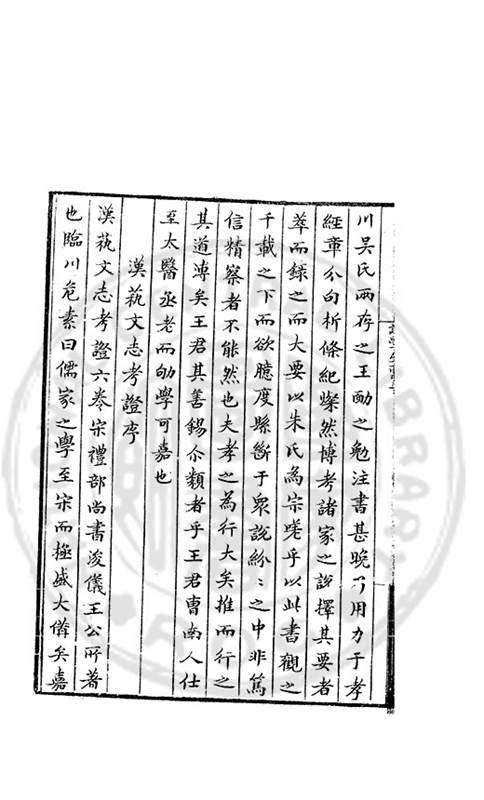 川吴氏兩存之王勔之勉注書甚晚乃用力于孝
經章分句析條紀燦然博考諸家之說擇其要者
萃而錄之而大要以朱氏為宗嗟乎以此書觀之
千載之下而欲臆度縣斷于衆說紛〻之中非篤
信精察者不能然也夫孝之為行大矣推而行之
其道溥矣王君其善錫尒類者乎王君曹南人仕
至太醫丞老而劬學可嘉也
漢蓺文志考證序
漢蓺文志考證六卷宋禮部尚書浚儀王公所著
也臨川危素曰儒家之學至宋而極盛大儒矣嘉